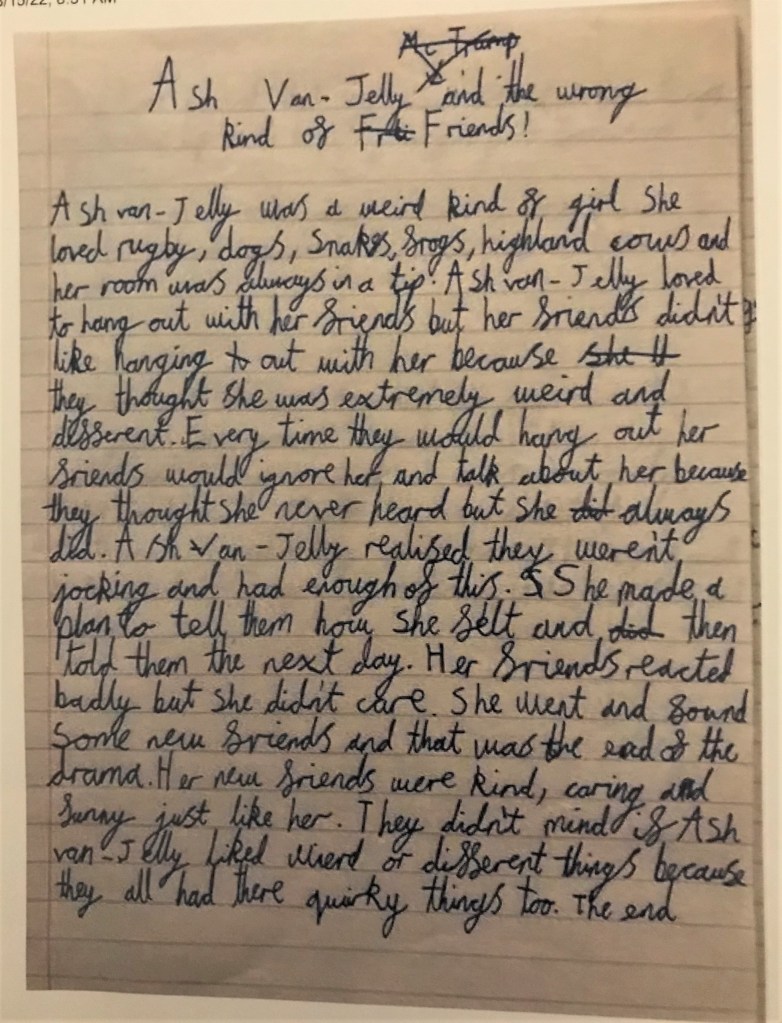 8/15/22, 8:51 AM
Mc Tramp
Ash Van-Jelly and the wrong
kind of Fri Friends!
Ash van-Jelly was a weird kind of girl she
loved rugby, dogs, Snakes, frogs, highland cows and
her room was always in a tip. Ash van-Jelly loved
to hang out with her friends but her friends didn't
like hanging to out with her because she
they thought she was extremely weird and
different. Every time they would hang out her
friends would ignore her and talk about her because
they thought she never heard but she did always
did. Ash Van-Jelly realised they weren't
jocking and had enough of this. S She made a
plan to tell them how she felt and did then
told them the next day. Her friends reacted
badly but she didn't care. She went and found
some new friends and that was the end of the
drama. Her new friends were kind, caring and
funny just like her. They didn't mind if Ash
van-Jelly liked wierd or different things because
they all had there quirky things too. The end